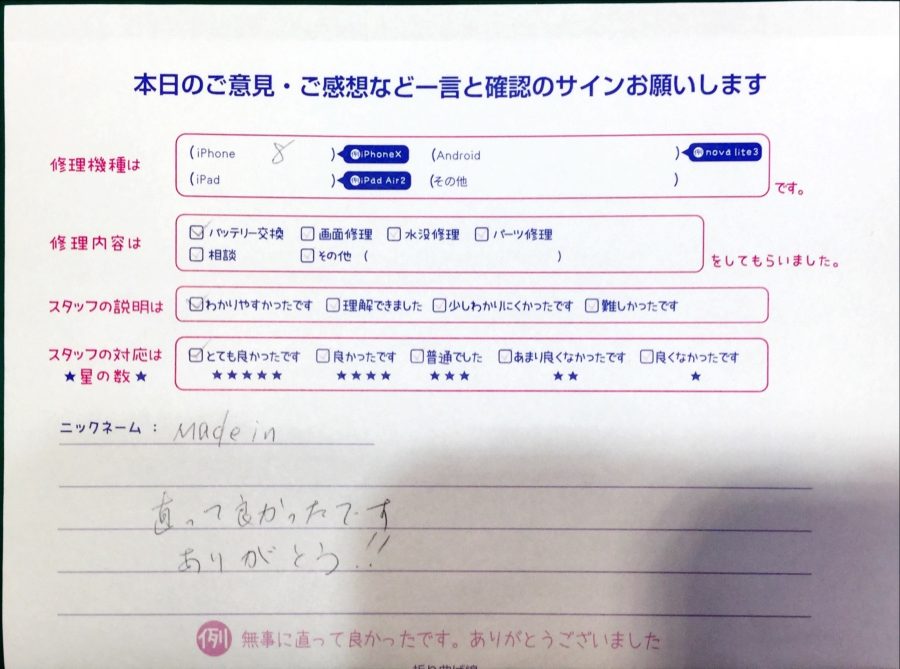 本日のご意見・ご感想など一言と確認のサインお願いします
修理機種は
(iPhone 8 ) 例iPhoneX (Android ) 例nova lite3
(iPad ) 例iPad Air2 (その他 ) です。
修理内容は
バッテリー交換 画面修理 水没修理 パーツ修理
相談 その他 ( ) をしてもらいました。
スタッフの説明は わかりやすかったです 理解できました 少しわかりにくかったです 難しかったです
スタッフの対応は とても良かったです 良かったです 普通でした あまり良くなかったです 良くなかったです
★星の数★ ★★★★★ ★★★★ ★★★ ★★ ★
ニックネーム: Made in
直って良かったです
ありがとう!!
例 無事に直って良かったです。ありがとうございました